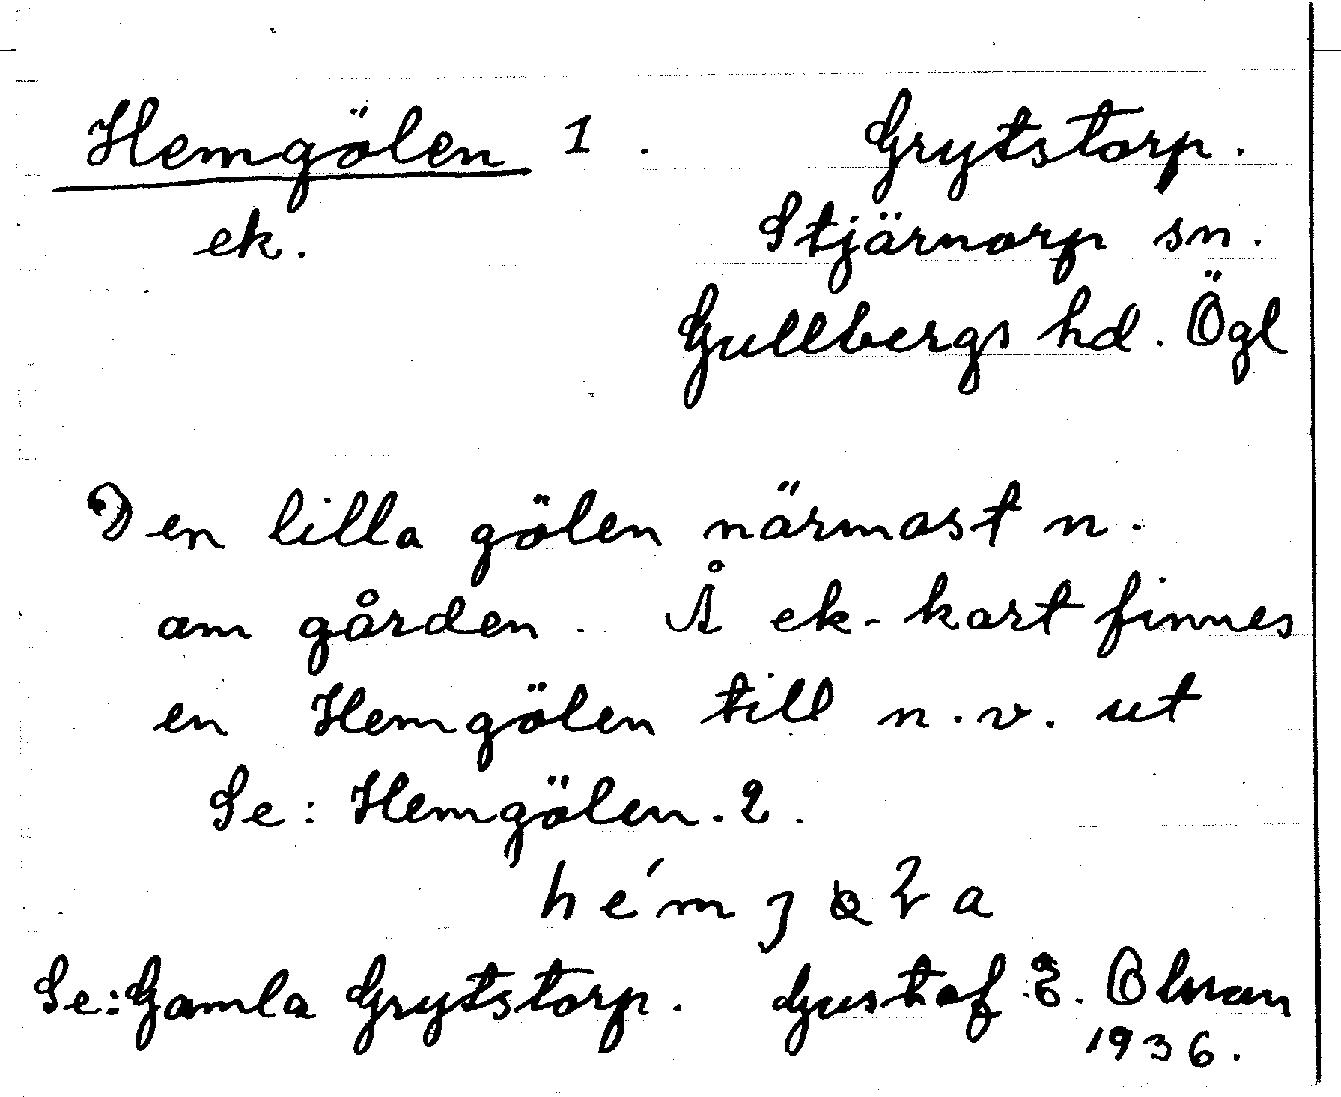 Hemgölen 1. Grytstorp.
ek. Stjärnorp sn.
Gullbergs hd. Ögl
Den lilla gölen närmast n.
om gården. Å ek-kart finnes
en Hemgölen till n.v. ut
Se: Hemgölen. 2.
Se: Gamla Grytstorp. Gustaf E. Olman
1936.